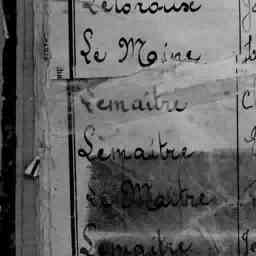 Letoroux
Le Moine
Lemaître
Lemaitre
Le Maitre
Lemaitre